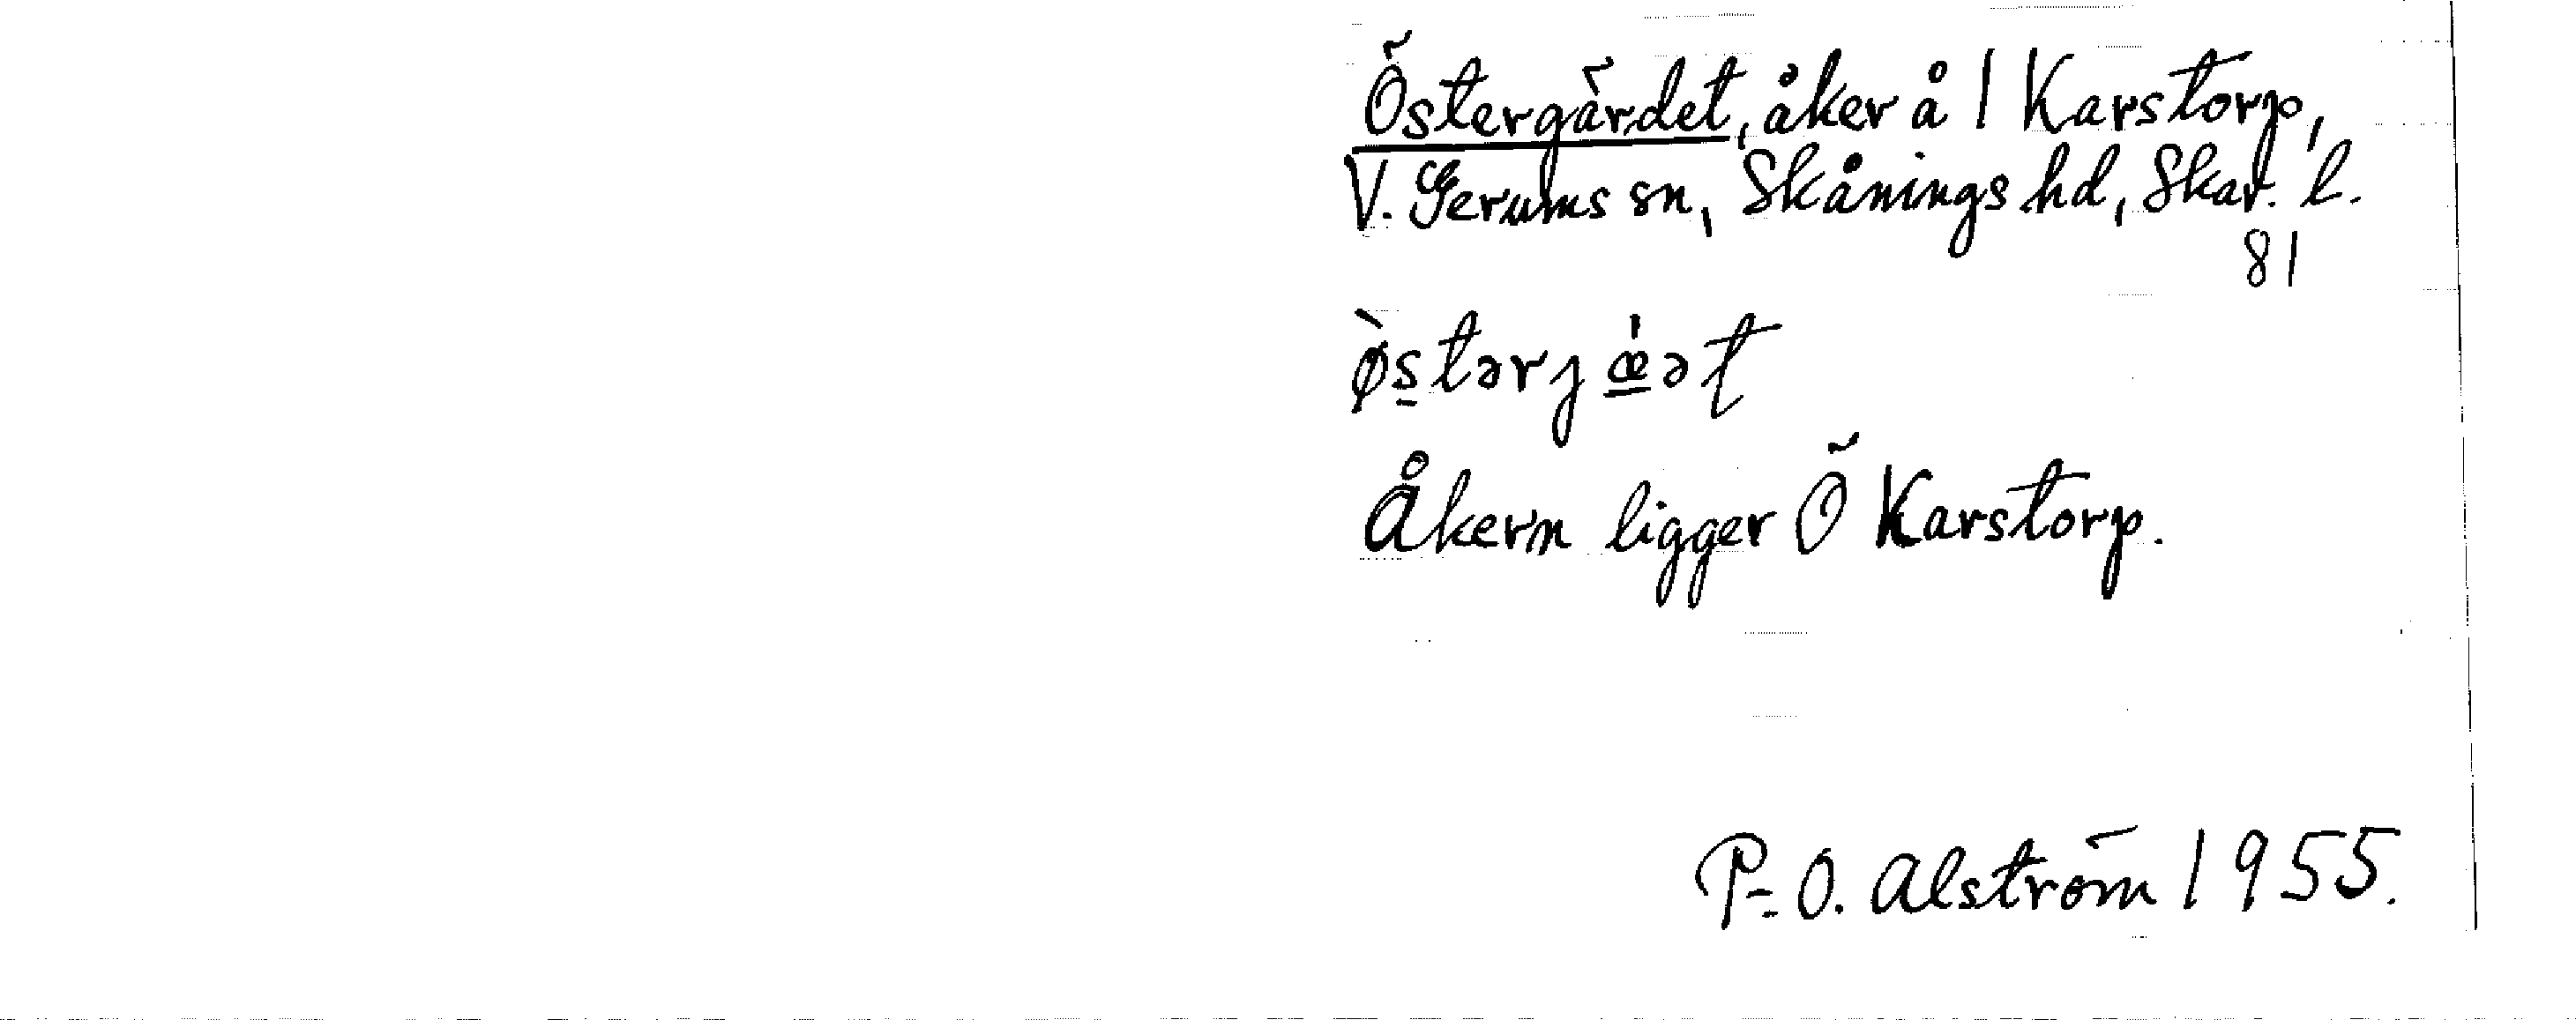 Östergärdet, åker å 1 Karstorp,
V. Gerums sn, Skånings hd, Skar. l.
81
ø̀stərjǽət
Åkern ligger Ö Karstorp.
P.-O. Alström 1955.